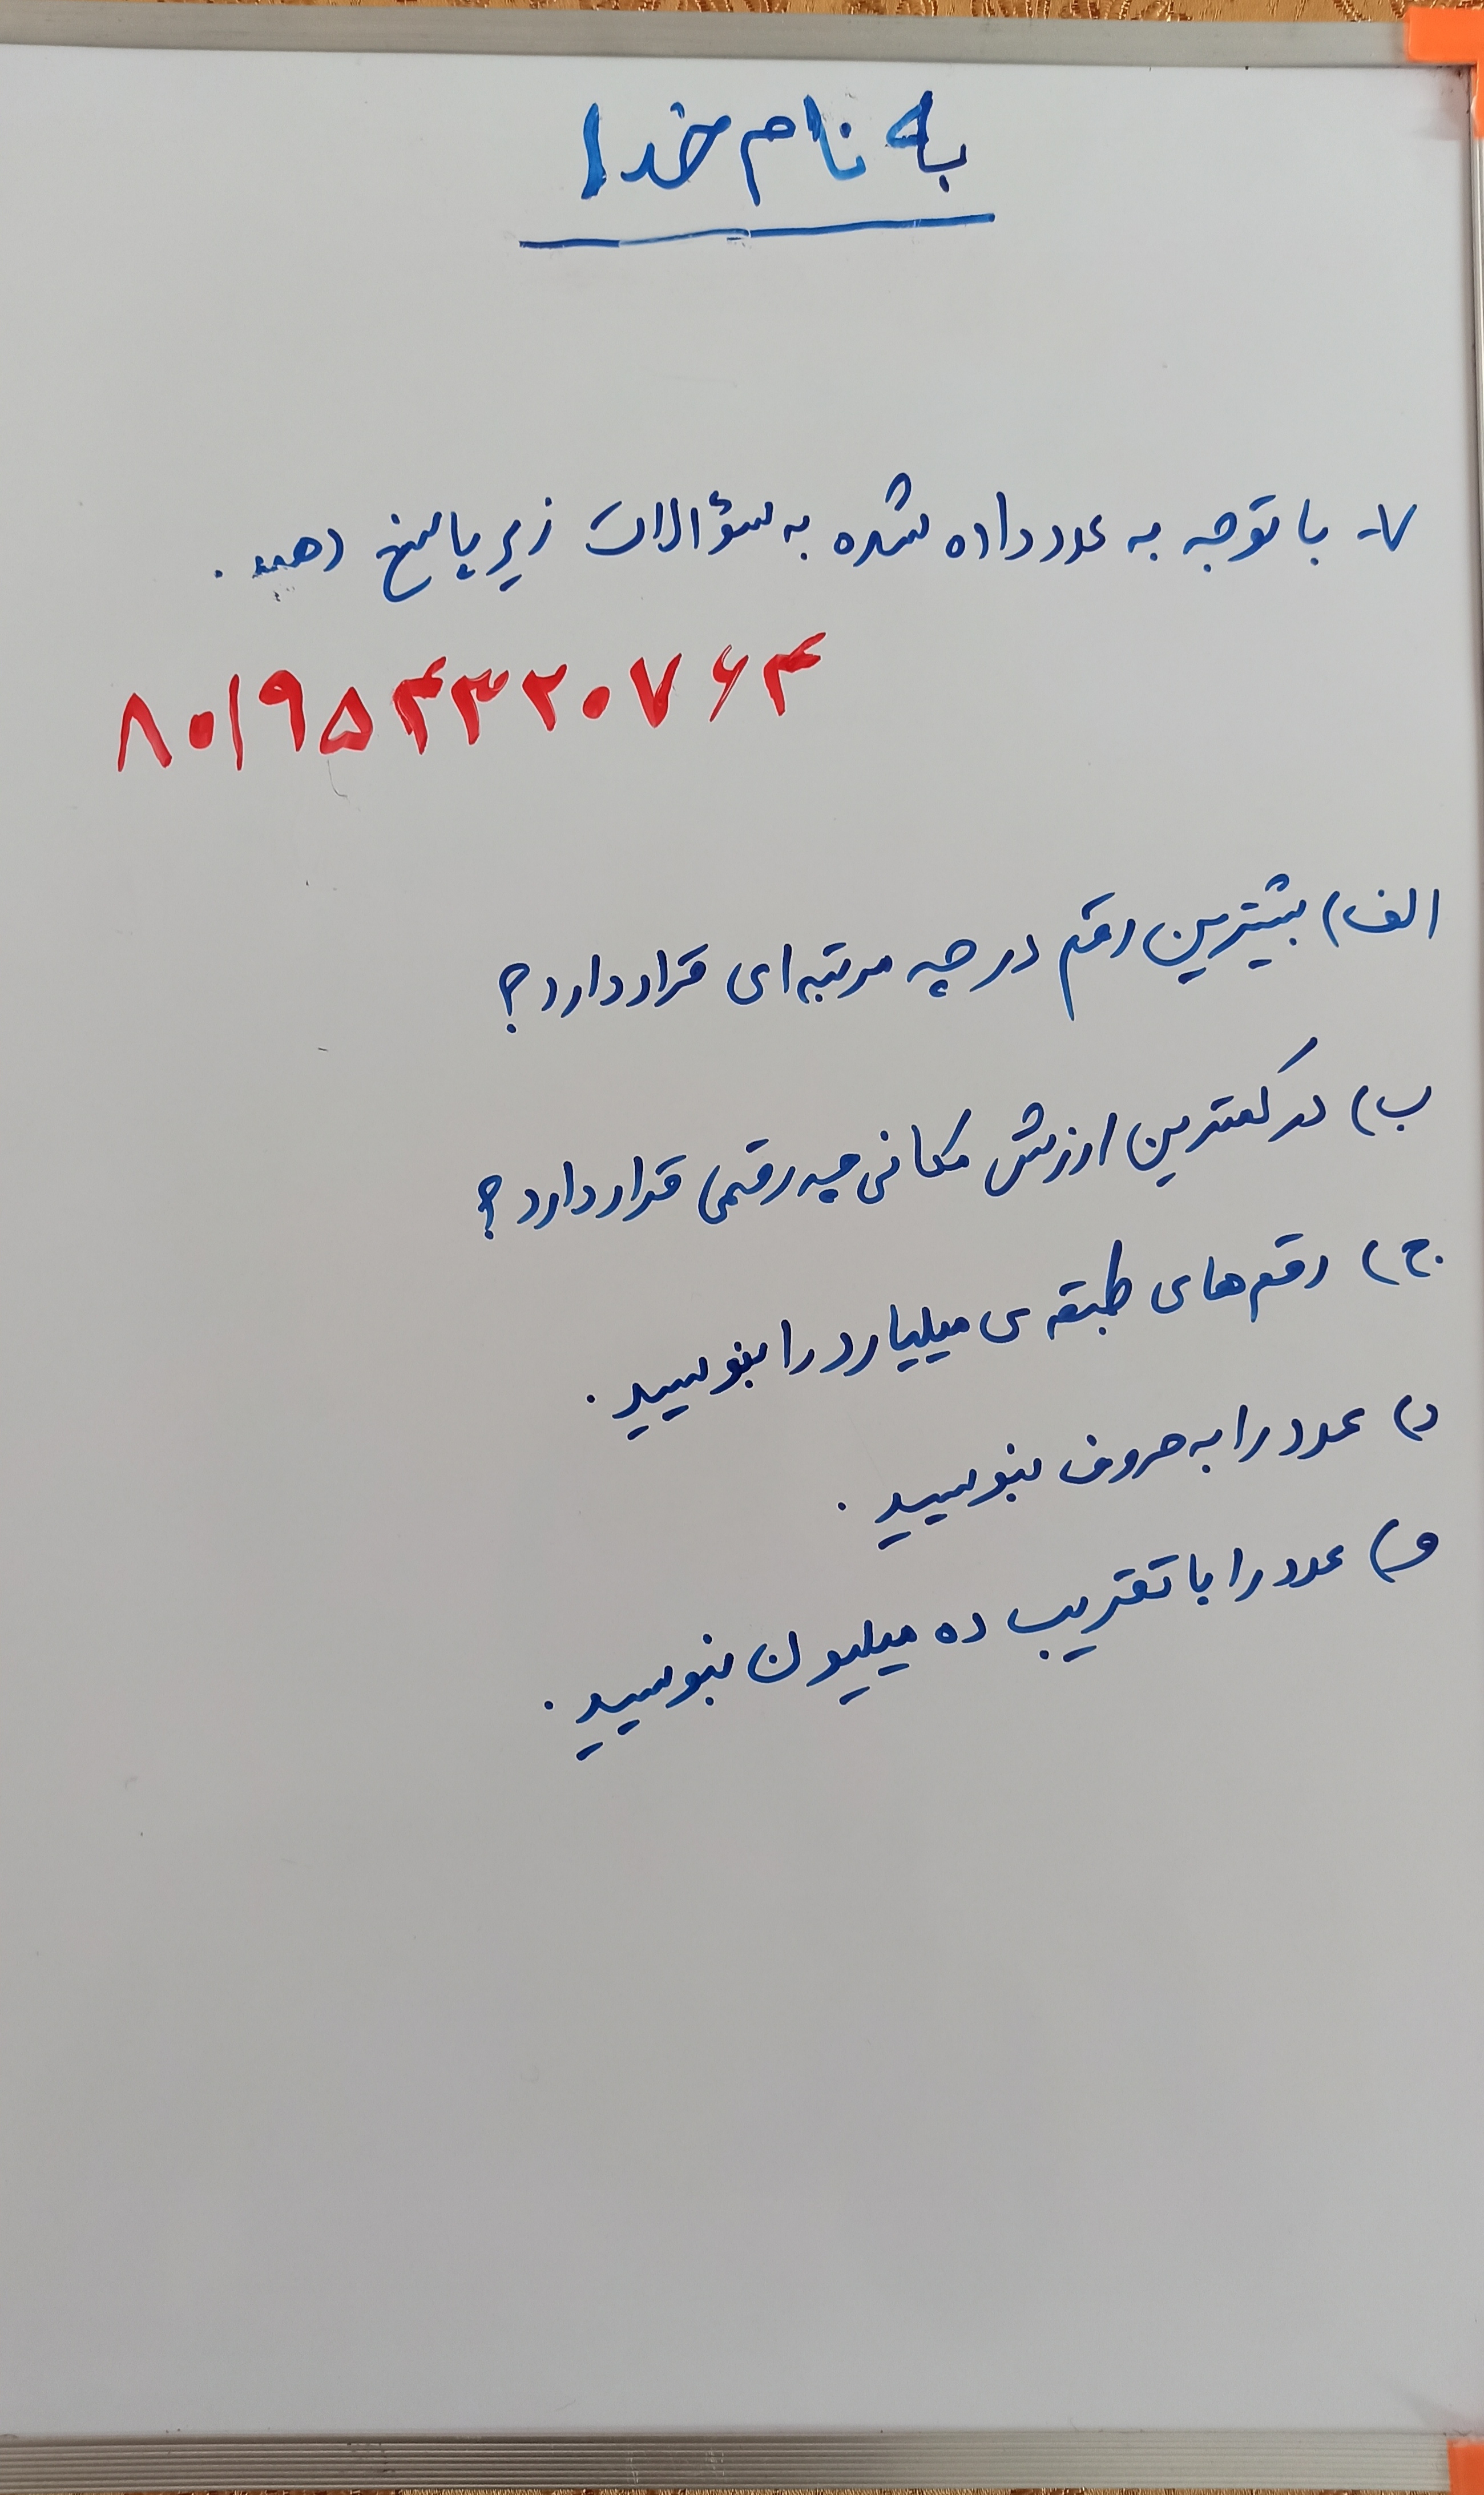 به نام خدا
۷- با توجه به عدد داده شده به سؤالات زیر پاسخ دهید.
۸۰۱۹۵۴۳۲۰۷۶۴
الف) بیشترین رقم در چه مرتبه‌ای قرار دارد؟
ب) در کمترین ارزش مکانی چه رقمی قرار دارد؟
ج) رقم‌های طبقه‌ی میلیارد را بنویسید.
د) عدد را به حروف بنویسید.
و) عدد را با تقریب ده میلیون بنویسید.